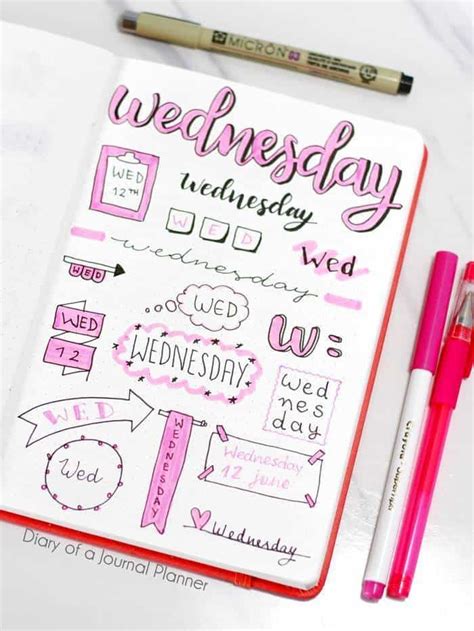 MICRON 03
wednesday
WED
12TH
Wednesday
W E D
Wed
wednesday
WED
WED
WED
12
WEDNESDAY
W:
Wed
nes
day
WED
WEDNESDAY
Wednesday
12 june
Wed
Wednesday
Crayola SuperTips
Diary of a Journal Planner